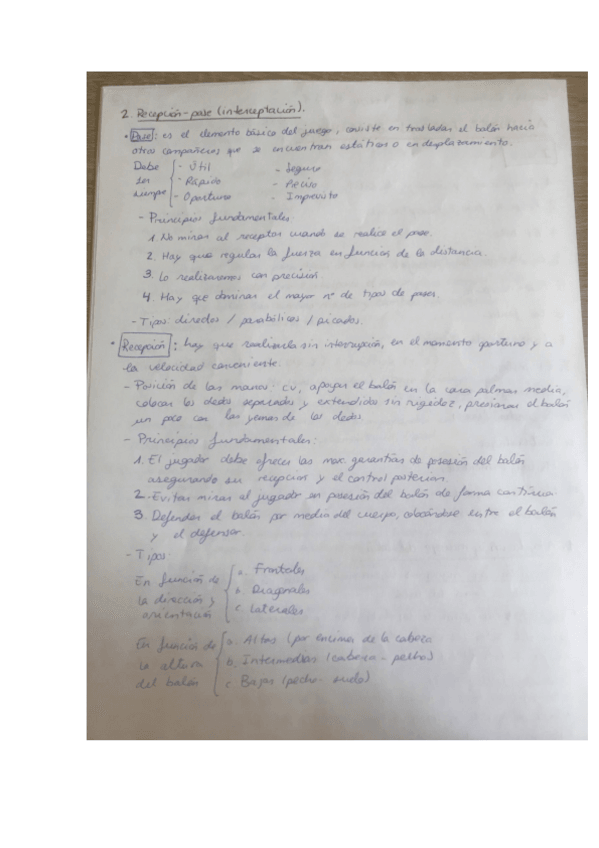 2. Recepción-pase (interceptación).
• Pase: es el elemento básico del juego, consiste en trasladar el balón hacia
otros compañeros que se encuentran estáticos o en desplazamiento.
Debe ser siempre { - Útil - Seguro
- Rápido - Preciso
- Oportuno - Imprevisto
- Principios fundamentales:
1. No mirar al receptor cuando se realice el pase.
2. Hay que regular la fuerza en función de la distancia.
3. Lo realizaremos con precisión.
4. Hay que dominar el mayor nº de tipos de pases.
- Tipos: directos / parabólicos / picados.
• Recepción: hay que realizarla sin interrupción, en el momento oportuno y a
la velocidad conveniente.
- Posición de las manos: cv, apoyar el balón en la cara palmar media,
colocar los dedos separados y extendidos sin rigidez, presionar el balón
un poco con las yemas de los dedos
- Principios fundamentales:
1. El jugador debe ofrecer las max. garantías de posesión del balón
asegurando su recepcion y el control posterior.
2. Evitar mirar al jugador en posesión del balón de forma continua.
3. Defender el balón por media del cuerpo, colocándose entre el balón
y el defensor.
- Tipos:
En función de la dirección y orientación { a. Frontales
b. Diagonales
c. Laterales
En función de la altura del balón { a. Altas (por encima de la cabeza
b. Intermedias (cabeza - pecho)
c. Bajas (pecho - suelo)